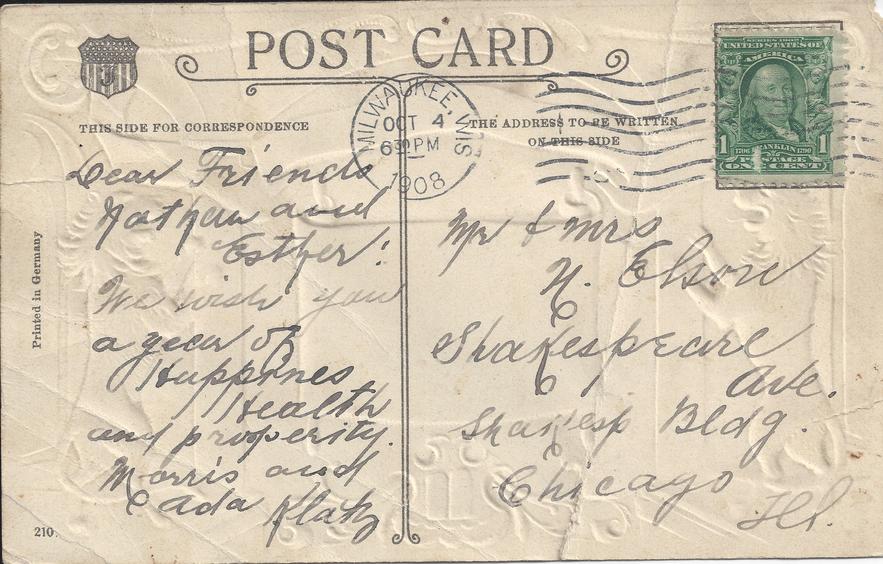 POST CARD
J
THIS SIDE FOR CORRESPONDENCE
THE ADDRESS TO BE WRITTEN
ON THIS SIDE
MILWAUKEE WIS
OCT 4
6 30 PM
1908
SERIES 1902
UNITED STATES OF
AMERICA
1706 FRANKLIN 1790
1 1
POSTAGE
ONE CENT
Dear Friends
Nathan and
Esther:
We wish you
a year of
Happines
Health
and prosperity.
Morris and
Ada Klatz
Mr & Mrs
N. Elson
Shakespeare
Ave.
Shakesp Bldg.
Chicago
Ill.
Printed in Germany
210